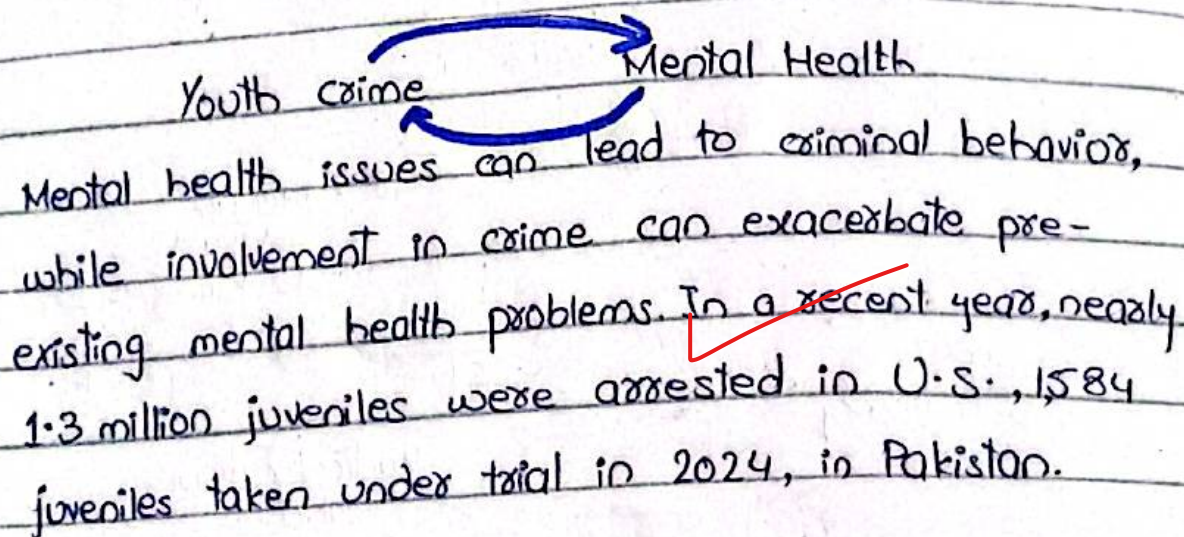 Youth crime Mental Health
Mental health issues can lead to criminal behavior,
while involvement in crime can exacerbate pre-
existing mental health problems. In a recent year, nearly
1.3 million juveniles were arrested in U.S., 1,584
juveniles taken under trial in 2024, in Pakistan.